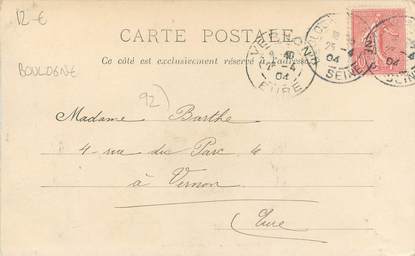 12-€
CARTE POSTALE
Ce côté est exclusivement réservé à l'adresse.
BOULOGNE
92)
EURE
04
SEINE
04
Madame Barthe
4 rue du Parc 4
à Vernon
Eure